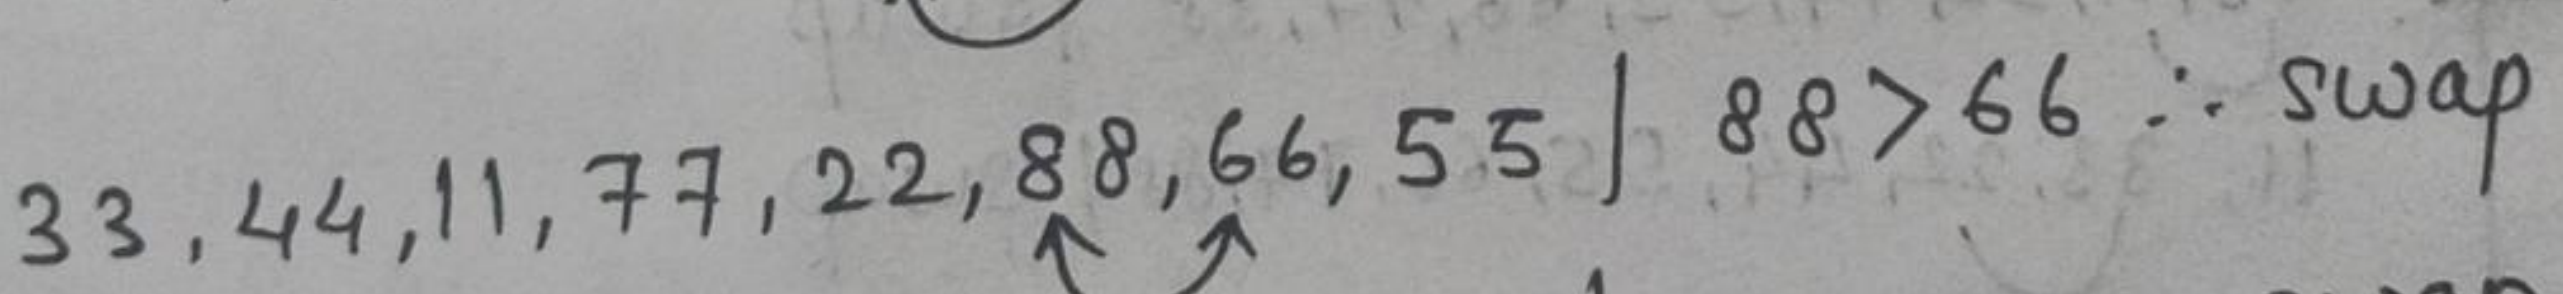 33, 44, 11, 77, 22, 88, 66, 55 | 88 > 66 ∴ swap